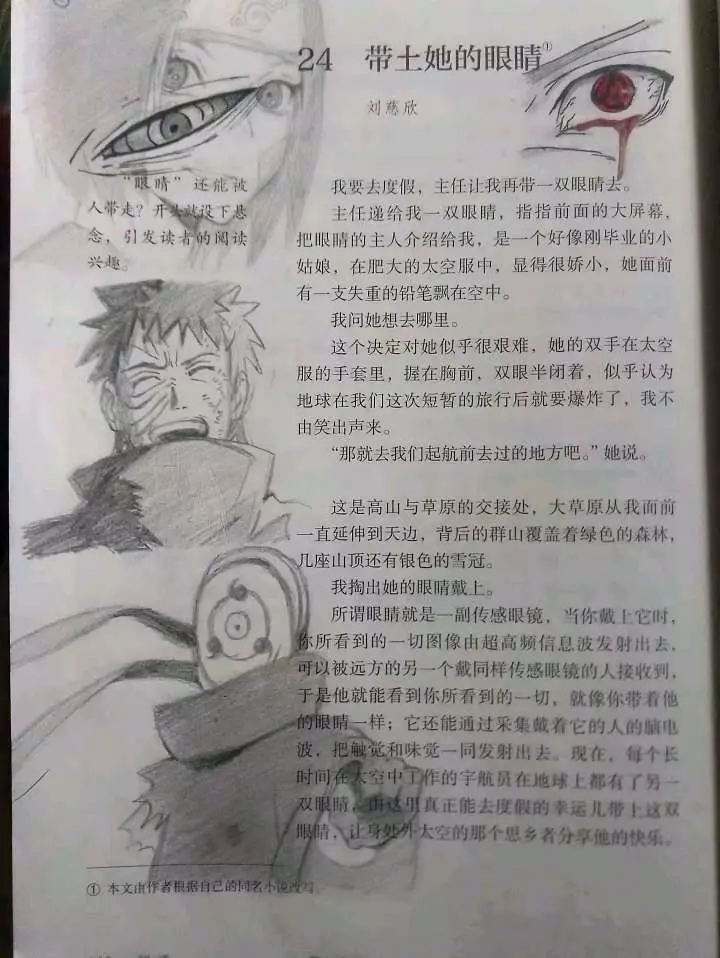 24 带土她的眼睛①
刘慈欣
“眼睛”还能被
人带走？开头就设下悬
念，引发读者的阅读
兴趣。
我要去度假，主任让我再带一双眼睛去。
主任递给我一双眼睛，指指前面的大屏幕，
把眼睛的主人介绍给我，是一个好像刚毕业的小
姑娘，在肥大的太空服中，显得很娇小，她面前
有一支失重的铅笔飘在空中。
我问她想去哪里。
这个决定对她似乎很艰难，她的双手在太空
服的手套里，握在胸前，双眼半闭着，似乎认为
地球在我们这次短暂的旅行后就要爆炸了，我不
由笑出声来。
“那就去我们起航前去过的地方吧。”她说。
这是高山与草原的交接处，大草原从我面前
一直延伸到天边，背后的群山覆盖着绿色的森林，
几座山顶还有银色的雪冠。
我掏出她的眼睛戴上。
所谓眼睛就是一副传感眼镜，当你戴上它时，
你所看到的一切图像由超高频信息波发射出去，
可以被远方的另一个戴同样传感眼镜的人接收到，
于是他就能看到你所看到的一切，就像你带着他
的眼睛一样；它还能通过采集戴着它的人的脑电
波，把触觉和味觉一同发射出去。现在，每个长
时间在太空中工作的宇航员在地球上都有了另一
双眼睛，由这里真正能去度假的幸运儿带上这双
眼睛，让身处外太空的那个思乡者分享他的快乐。
① 本文由作者根据自己的同名小说改写。